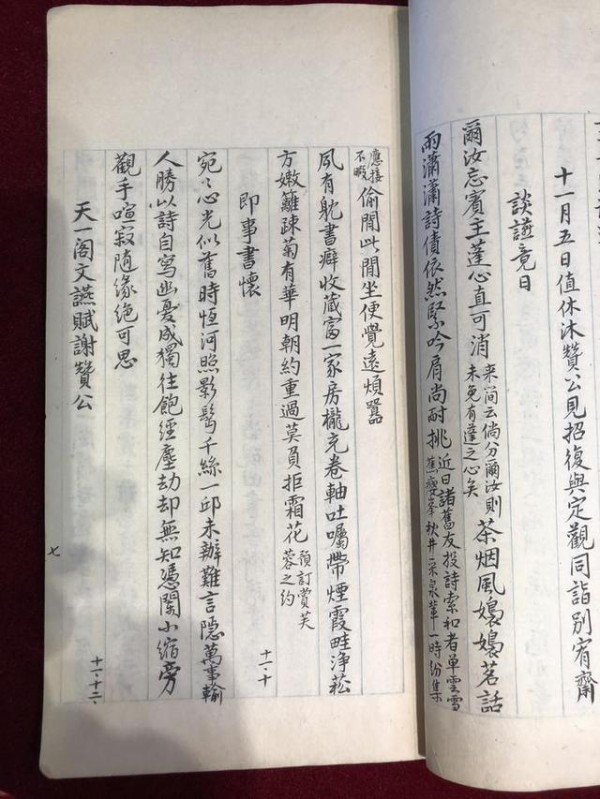 十一月五日值休沐贊公見招復與定觀同詣別宥齋
談讌竟日
爾汝忘賓主蓬心直可消來簡云倘分爾汝則未免有蓬之心矣茶烟風嫋嫋茗話
雨瀟瀟詩債依然緊吟肩尚耐挑近日諸舊友投詩索和者單雲雪蕉瘦峯秋井采泉輩一時份集
應接不暇偷閒此閒坐便覺遠煩囂
夙有躭書癖收藏富一家房櫳充卷軸吐囑帶煙霞畦淨菘
方嫩籬疎菊有華明朝約重過莫負拒霜花預訂賞芙蓉之約
十一·十
即事書懷
宛〻心光似舊時恆河照影鬂千絲一邱未辦難言隱萬事輸
人勝以詩自寫幽憂成獨往飽經塵劫却無知憑闌小縮旁
觀手喧寂隨緣絕可思
十一·十二·
天一阁文讌賦謝贊公
七